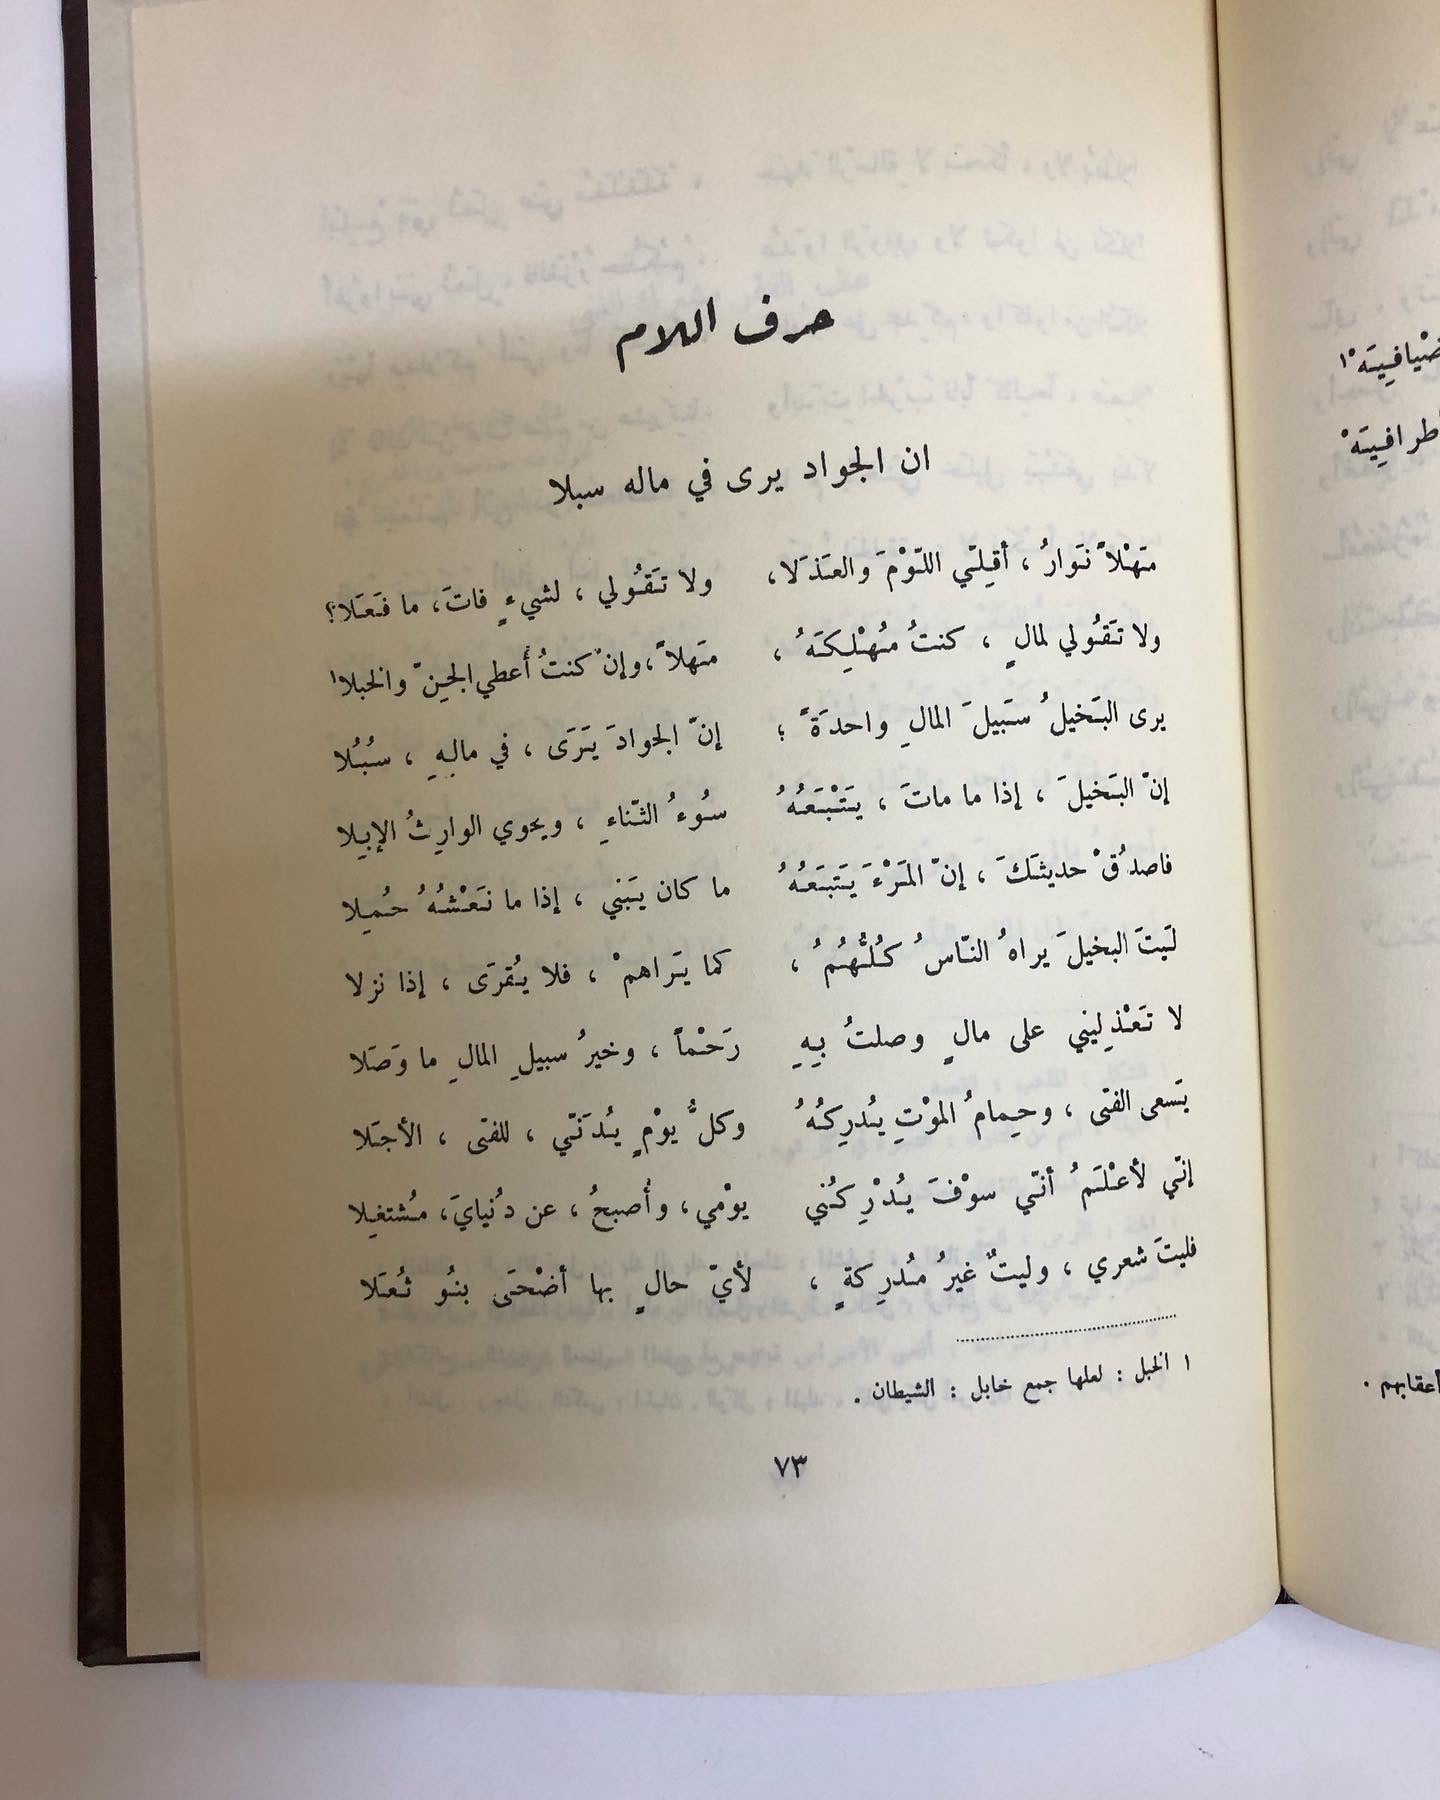 حرف اللام
ان الجواد يرى في ماله سبلا
مَهْلاً نَوارُ ، أقِلّي اللّوْمَ والعَذَلا ، ولا تَقُولي ، لشيءٍ فاتَ ، ما فَعَلا؟
ولا تَقُولي لمالٍ ، كنتُ مُهْلِكَهُ ، مَهلاً ، وإنْ كنتُ أُعطي الجِنّ والخبلا١
يرى البَخيلُ سَبيلَ المالِ واحدَةً ؛ إنّ الجوادَ يَرَى ، في مالِهِ ، سُبُلا
إنّ البَخيلَ ، إذا ما ماتَ ، يَتْبَعُهُ سُوءُ الثّناءِ ، ويحوي الوارِثُ الإبِلا
فاصدُقْ حديثَكَ ، إنّ المَرْءَ يَتبَعُهُ ما كان يَبني ، إذا ما نَعْشُهُ حُمِلا
لَيتَ البخيلَ يراهُ النّاسُ كُلُّهُمُ ، كما يَراهمْ ، فلا يُقرَى ، إذا نزلا
لا تَعْذِليني على مالٍ وصلتُ بِهِ رَحْماً ، وخيرُ سبيلِ المالِ ما وَصَلا
يَسعى الفتى ، وحِمامُ الموْتِ يُدرِكُهُ وكلُّ يوْمٍ يُدَنّي ، للفتى ، الأجَلا
إنّي لأعْلَمُ أنّي سوْفَ يُدْرِكُني يوْمي ، وأُصبحُ ، عن دُنيايَ ، مُشتغِلا
فليتَ شعري ، وليتٌ غيرُ مُدرِكةٍ ، لأيّ حالٍ بها أضْحَى بنُو ثُعَلا
١ الخبل : لعلها جمع خابل : الشيطان .
٧٣
ضيافيته١ْ
أطرافيَهْ
أعقابهم .